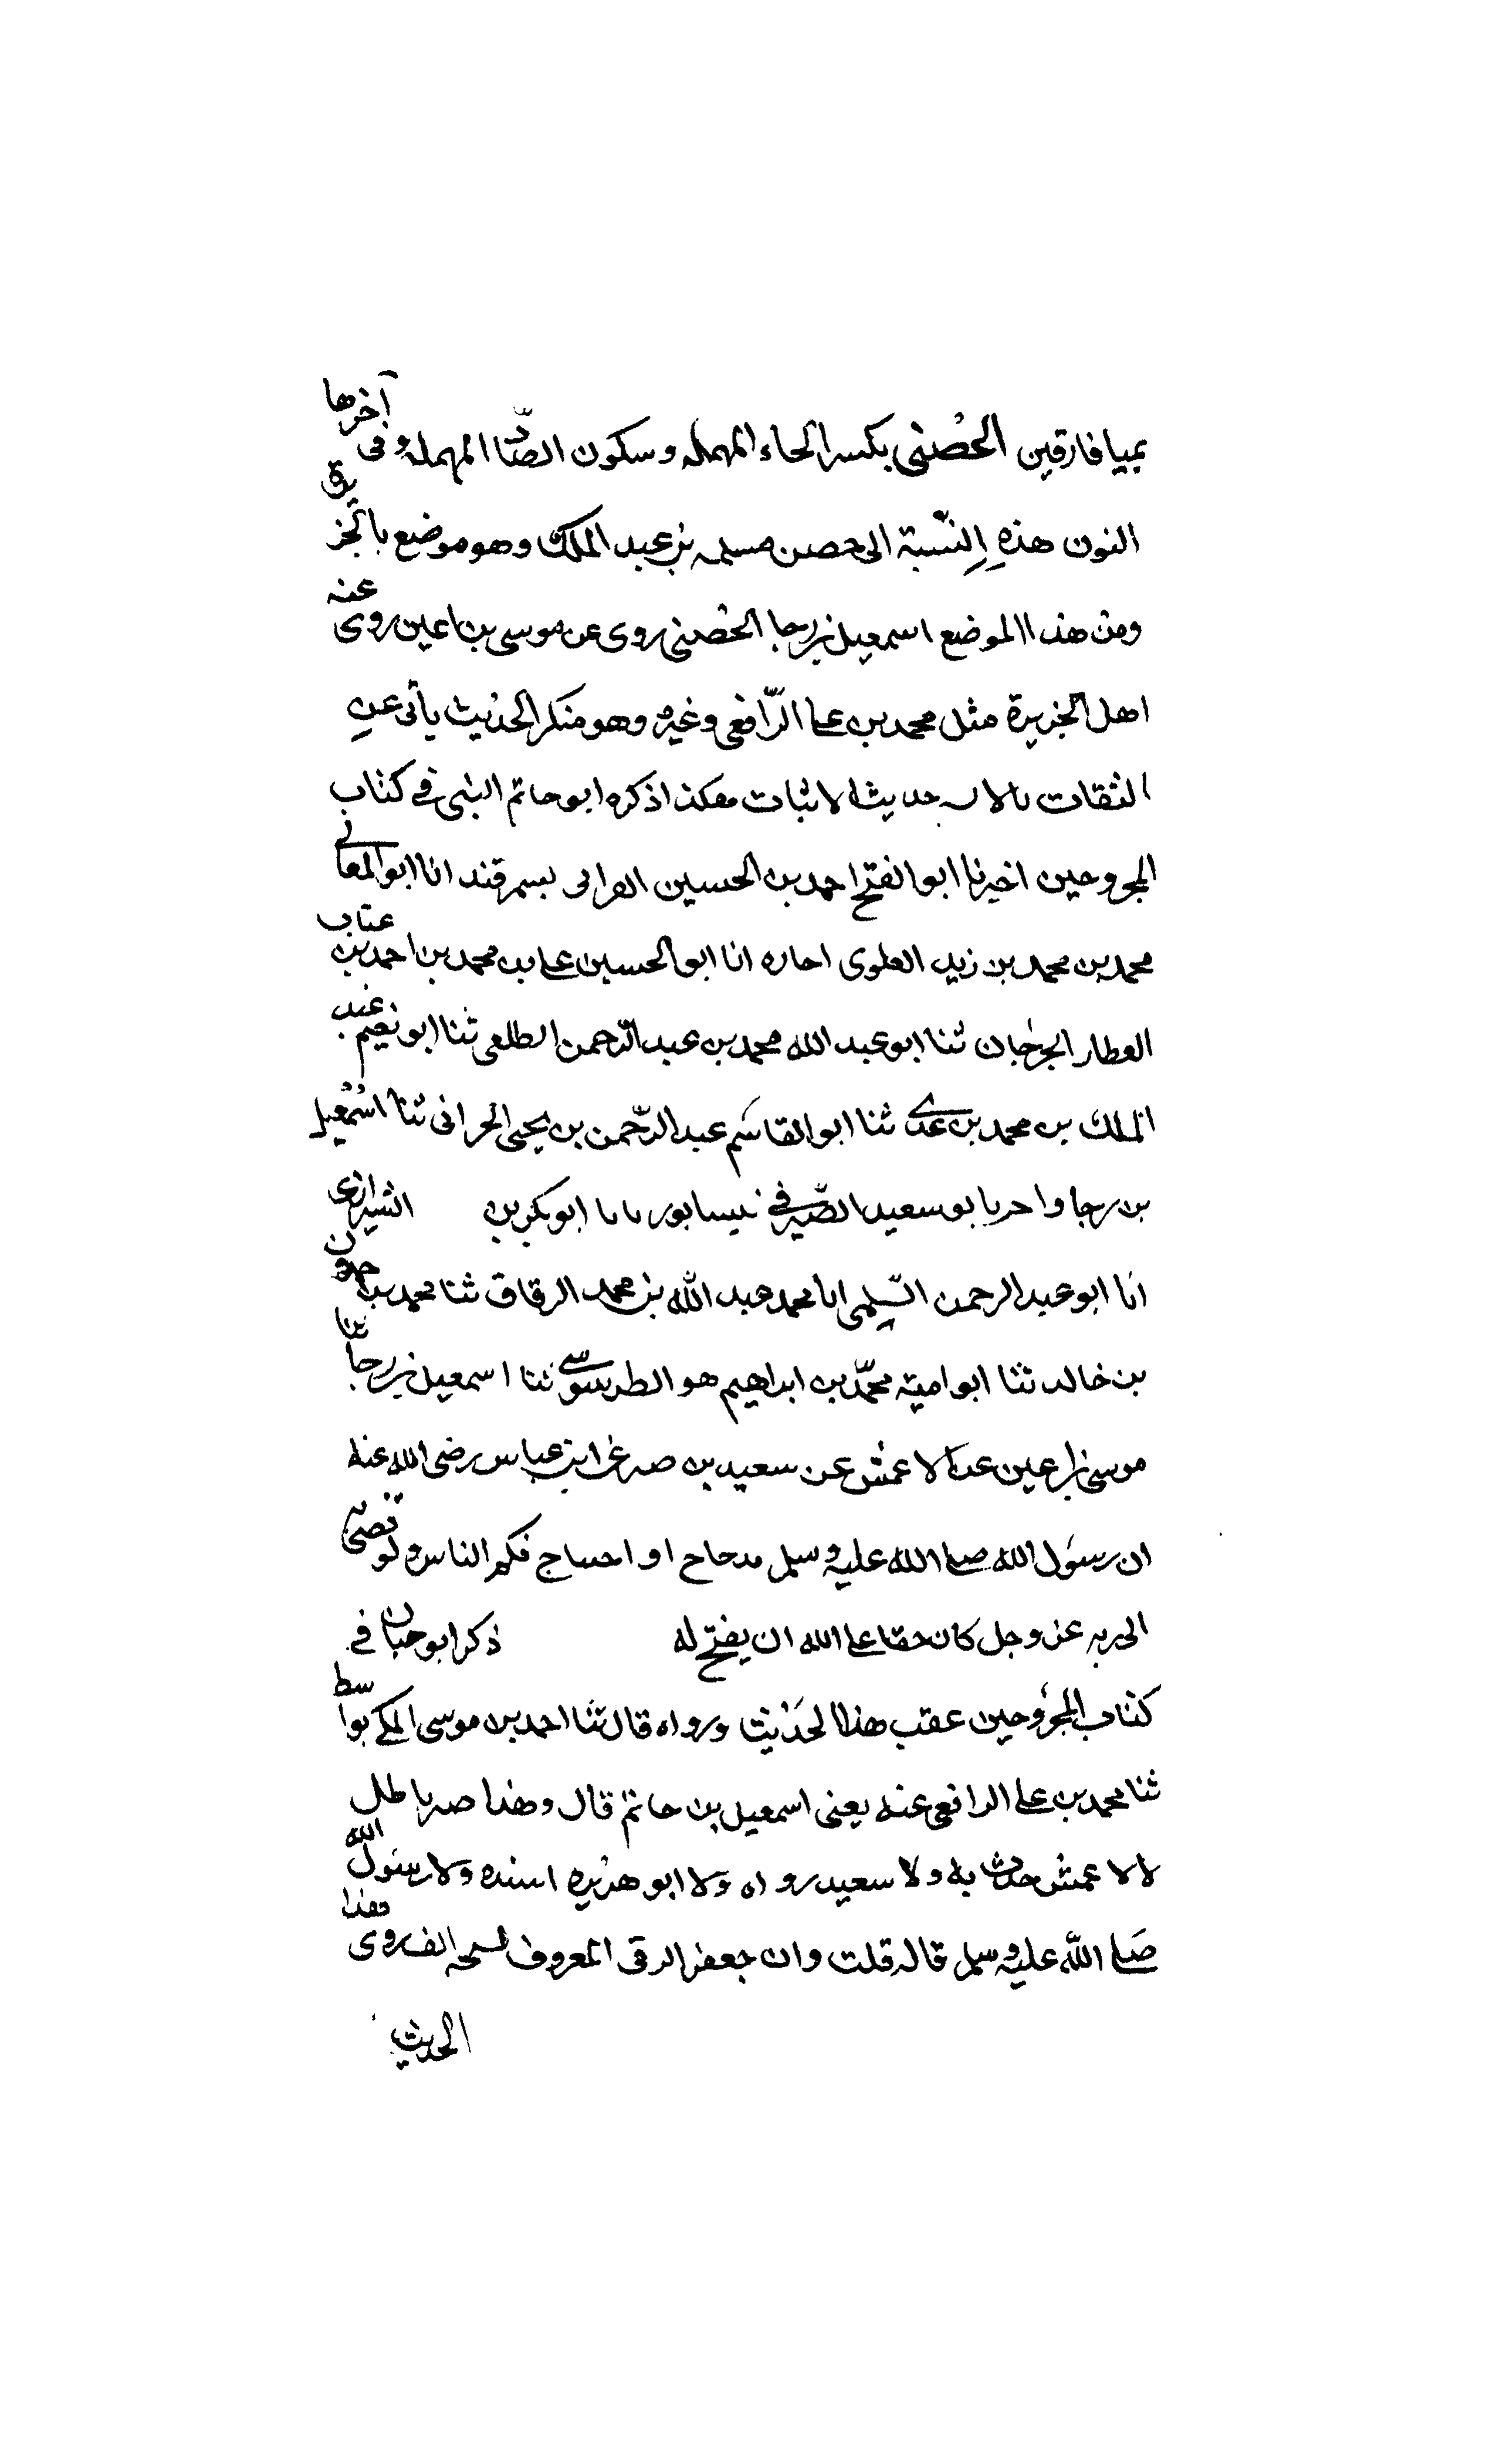 بميافارقين الحصنى بكسر الحاء المهملة وسكون الصاد المهملة وفى آخرها
النون هذه النسبة الى حصن مسلمه بن عبد الملك وهو موضع بالجزيرة
ومن هذا الموضع اسمعيل بن رجا الحصنى روى عن موسى بن اعين روى عنه
اهل الجزيرة مثل محمد بن على الرافعى وغيره وهو منكر الحديث يأتى عن
الثقات حديث الاثبات هكذا ذكره ابو حاتم البستى فى كتاب
المجروحين اخبرنا ابو الفتح احمد بن الحسين بسمرقند انا ابو المعالى
محمد بن محمد بن زيد العلوى اجازه انا ابو الحسين على بن محمد بن احمد بن عتاب
العطار الجرجان ثنا ابو عبد الله محمد بن عبد الرحمن الطلقى ثنا ابو نعيم عبد
الملك بن محمد بن عدى ثنا ابو القاسم عبد الرحمن بن يحيى الحرانى ثنا اسمعيل
بن رجا ابو سعيد الصيرفى نيسابور ابو بكر بن الشيرازى
انا ابو عبد الرحمن السلمى انا محمد عبد الله بن محمد الرقاق ثنا محمد بن حمدون
بن خالد ثنا ابو امية محمد بن ابراهيم هو الطرسوسى ثنا اسمعيل بن رجا ثنا
موسى بن اعين عن الاعمش عن سعيد بن عن ابن عباس رضى الله عنه
ان رسول الله صلى الله عليه وسلم او احتاج فكتم الناس
عز وجل كان حقا على الله ان يفتح له ذكر ابو حبان فى
كتاب المجروحين عقب هذا الحديث ورواه قال ثنا احمد بن موسى المكى بواسط
ثنا محمد بن على الرافعى عنه يعنى اسمعيل بن حاتم قال وهذا باطل
لا الاعمش حدث به ولا سعيد رواه ولا ابو هريره اسنده ولا رسول الله
صلى الله عليه وسلم قاله قلت وان جعفر الرقى المعروف روى هذا
الحديث